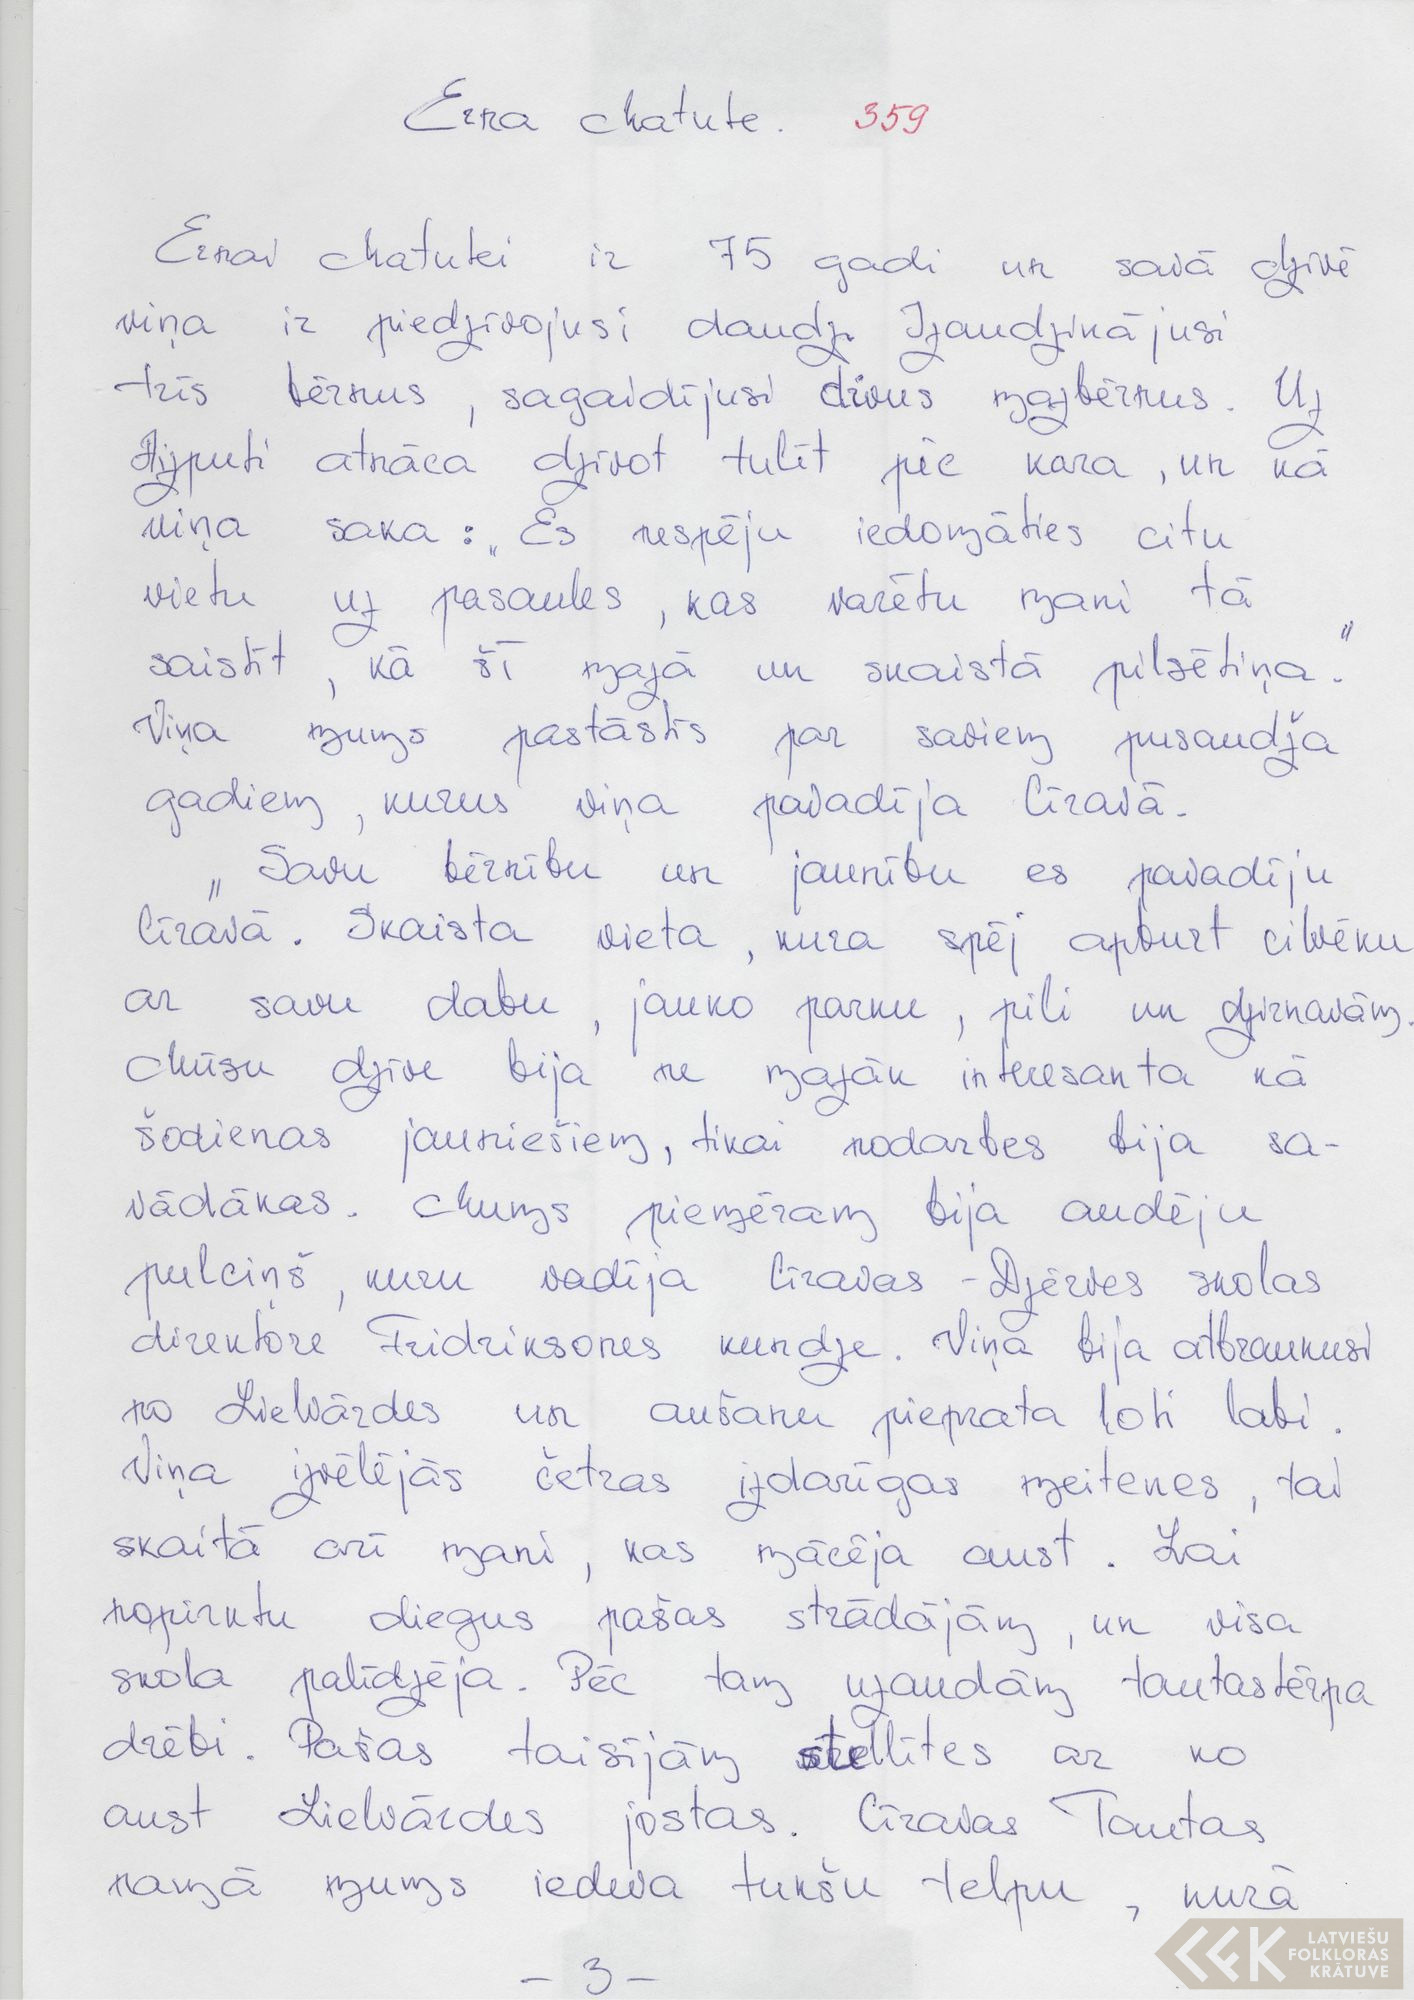 Erna Matute. 359
Ernai Matutei ir 75 gadi un savā dzīvē
viņa ir piedzīvojusi daudz. Izaudzinājusi
trīs bērnus, sagaidījusi divus mazbērnus. Uz
Aizputi atnāca dzīvot tulīt pēc kara, un kā
viņa saka: „Es nespēju iedomāties citu
vietu uz pasaules, kas varētu mani tā
saistīt, kā šī mazā un skaistā pilsētiņa."
Viņa mums pastāstīs par saviem pusaudža
gadiem, kurus viņa pavadīja Cīravā.
„Savu bērnību un jaunību es pavadīju
Cīravā. Skaista vieta, kura spēj apburt cilvēku
ar savu dabu, jauko parku, pili un dzirnavām.
Mūsu dzīve bija ne mazāk interesanta kā
šodienas jauniešiem, tikai nodarbes bija sa-
vādākas. Mums piemēram bija audēju
pulciņš, kuru vadīja Cīravas-Dzērves skolas
direktore Fridriksones kundze. Viņa bija atbraukusi
no Lielvārdes un aušanu pieprata ļoti labi.
Viņa izvēlējās četras izdarīgas meitenes, tai
skaitā arī mani, kas mācēja aust. Lai
nopirktu diegus pašas strādājām, un visa
skola palīdzēja. Pēc tam uzaudām tautastērpa
drēbi. Pašas taisījām stellītes ar ko
aust Lielvārdes jostas. Cīravas Tautas
namā mums iedeva tukšu telpu, kurā
- 3 -
LATVIEŠU
FOLKLORAS
KRĀTUVE